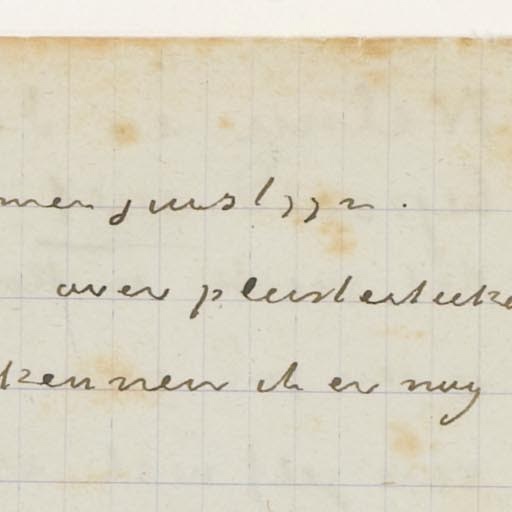 men juist zyn.
over pleisterstukke
kennen ik er nog